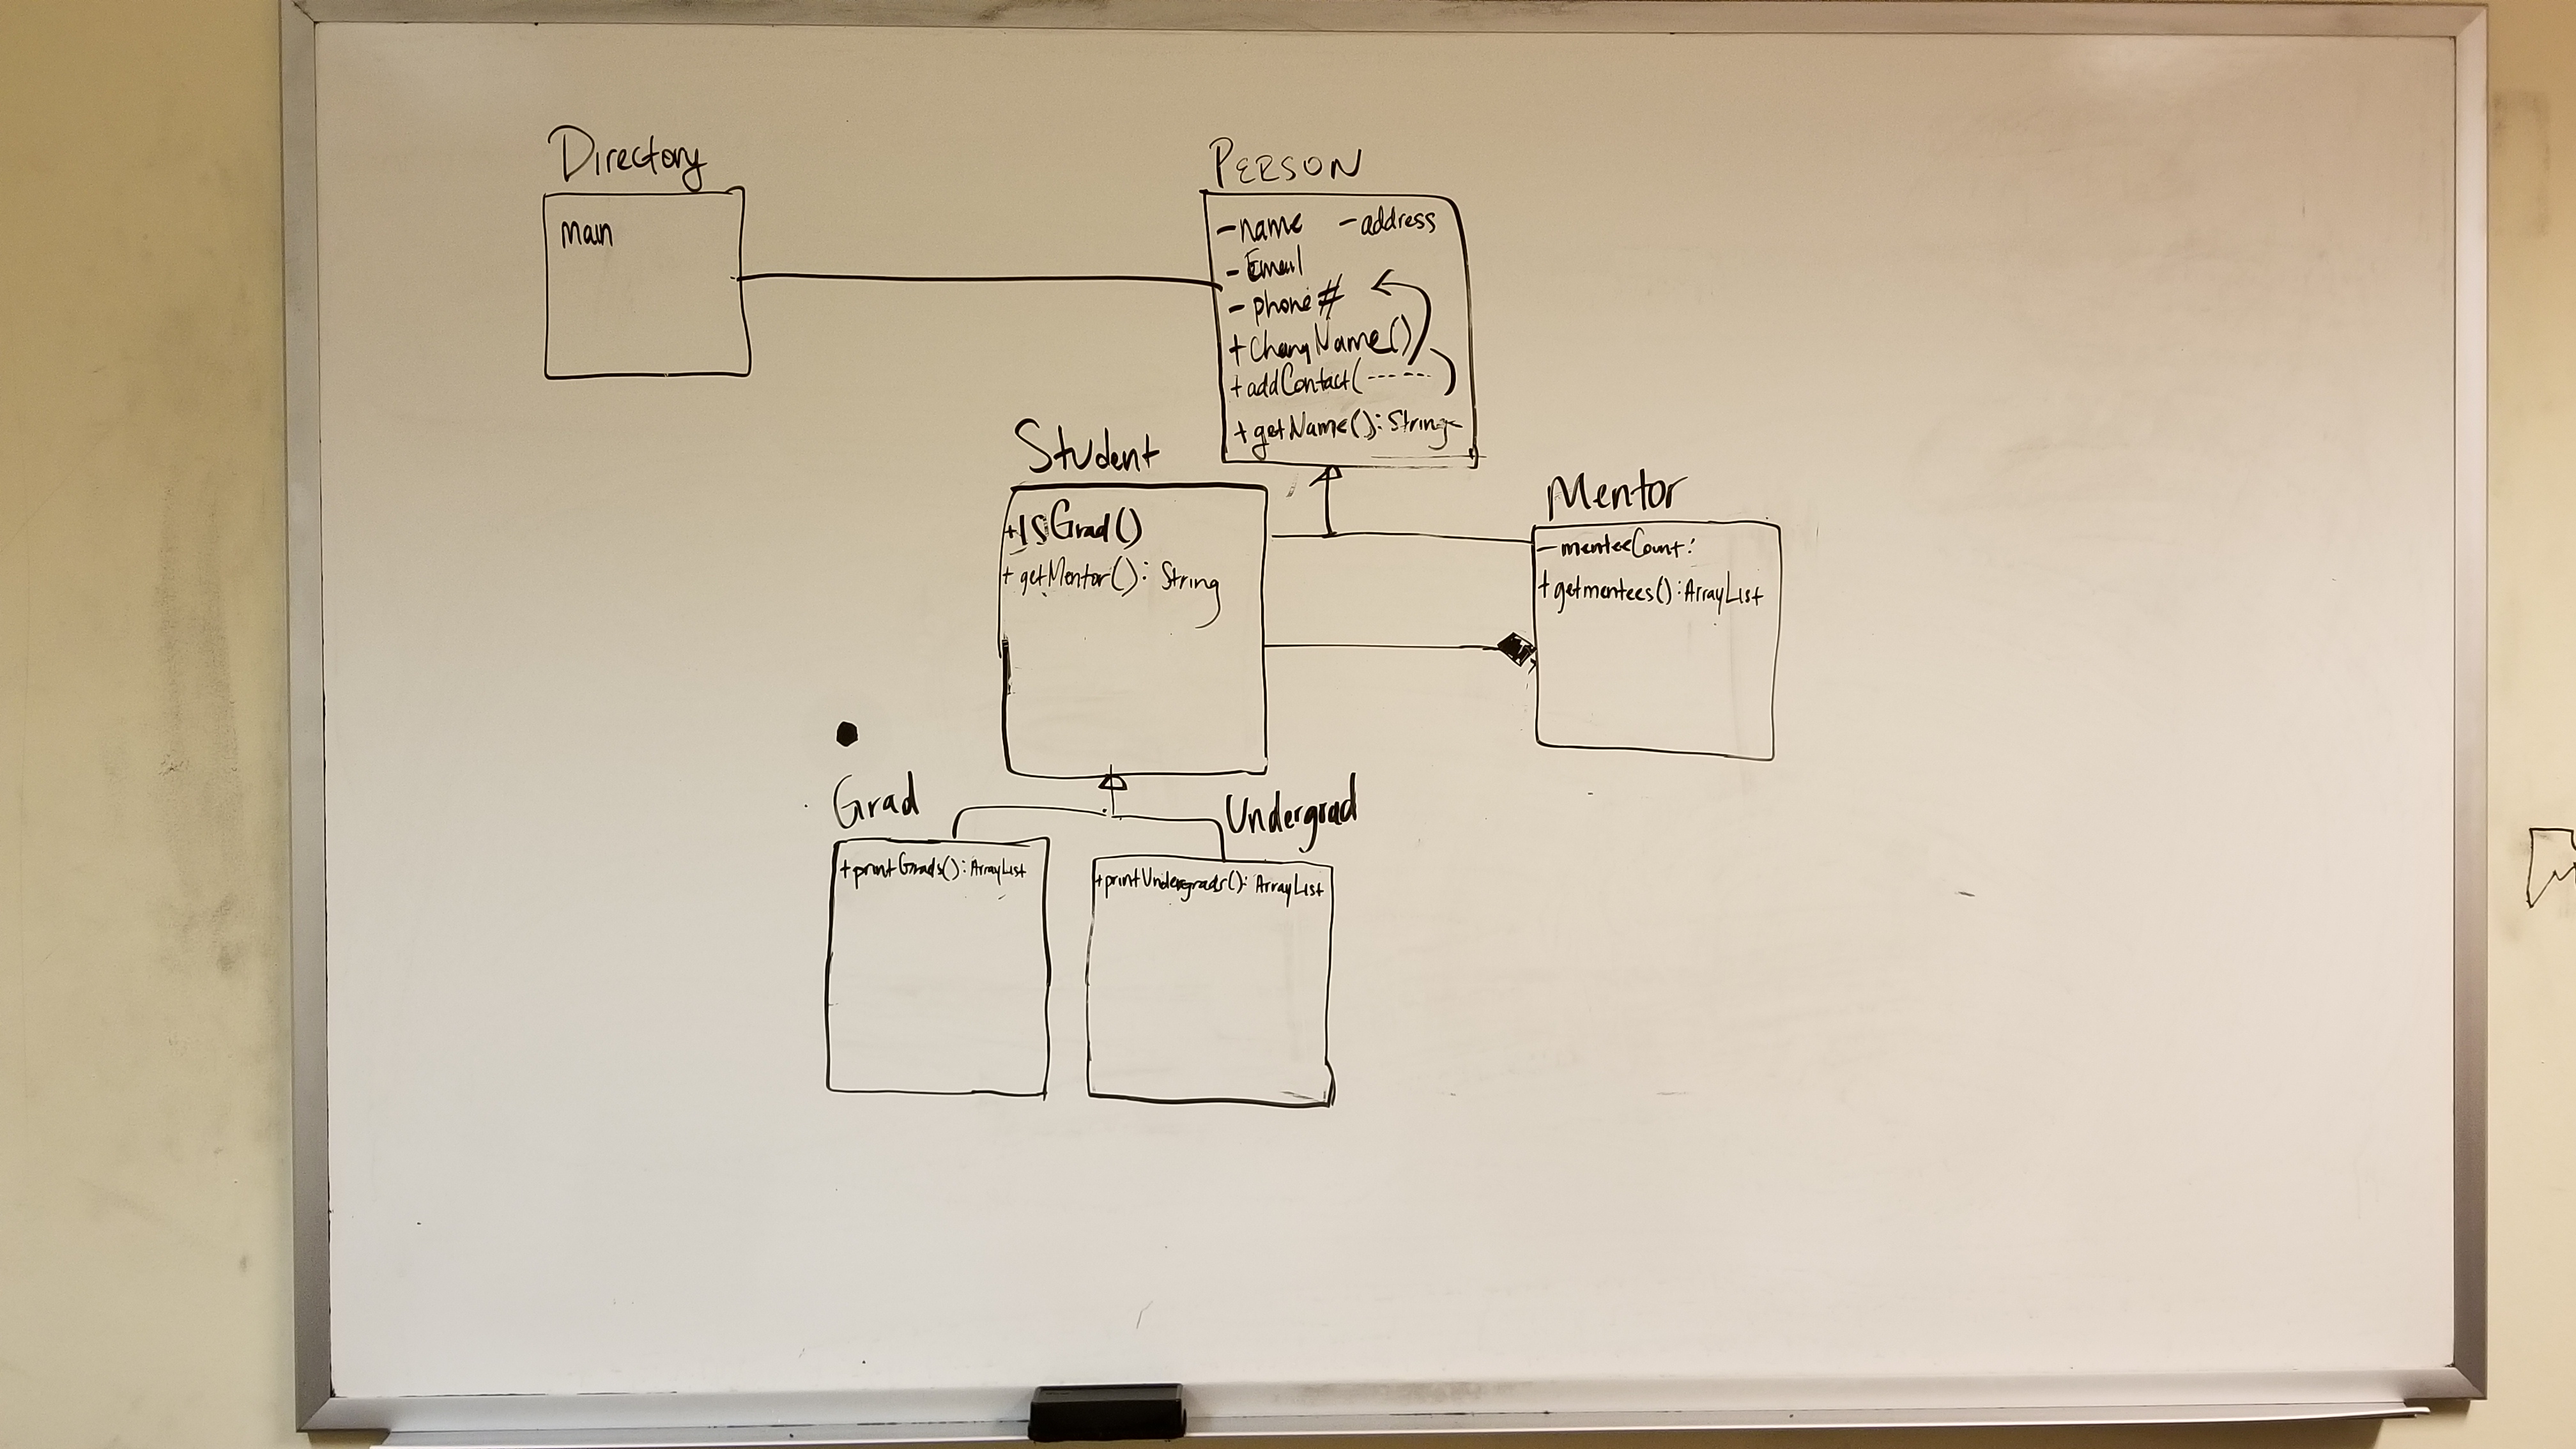 Directory
main
PERSON
-name -address
-Email
-phone#
+changName()
+addContact(------)
+getName():String
Student
+isGrad()
+getMentor(): String
Mentor
-menteeCount:
+getmentees():ArrayList
Grad
+printGrads():ArrayList
Undergrad
+printUndergrads(): ArrayList